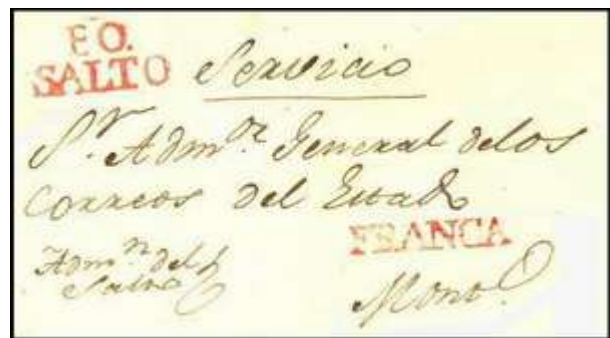 FO.
SALTO Servicio
Sr. Admor. General delos
Correos del Estado
FRANCA
Admn. del
Salto
Monto.